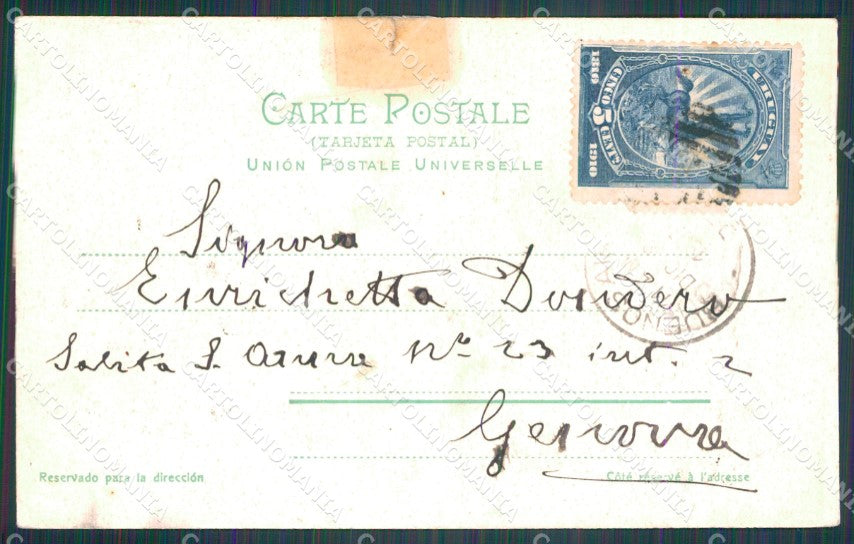 CARTE POSTALE
(TARJETA POSTAL)
UNIÓN POSTALE UNIVERSELLE
URUGUAY
1810 CINCO 5 CENTS 1910
BUENOS
Signora
Enrichetta Dondero
Salita S. No 23 int. 2
Genova
Reservado para la dirección
Côté réservé à l'adresse
CARTOLINOMANIA